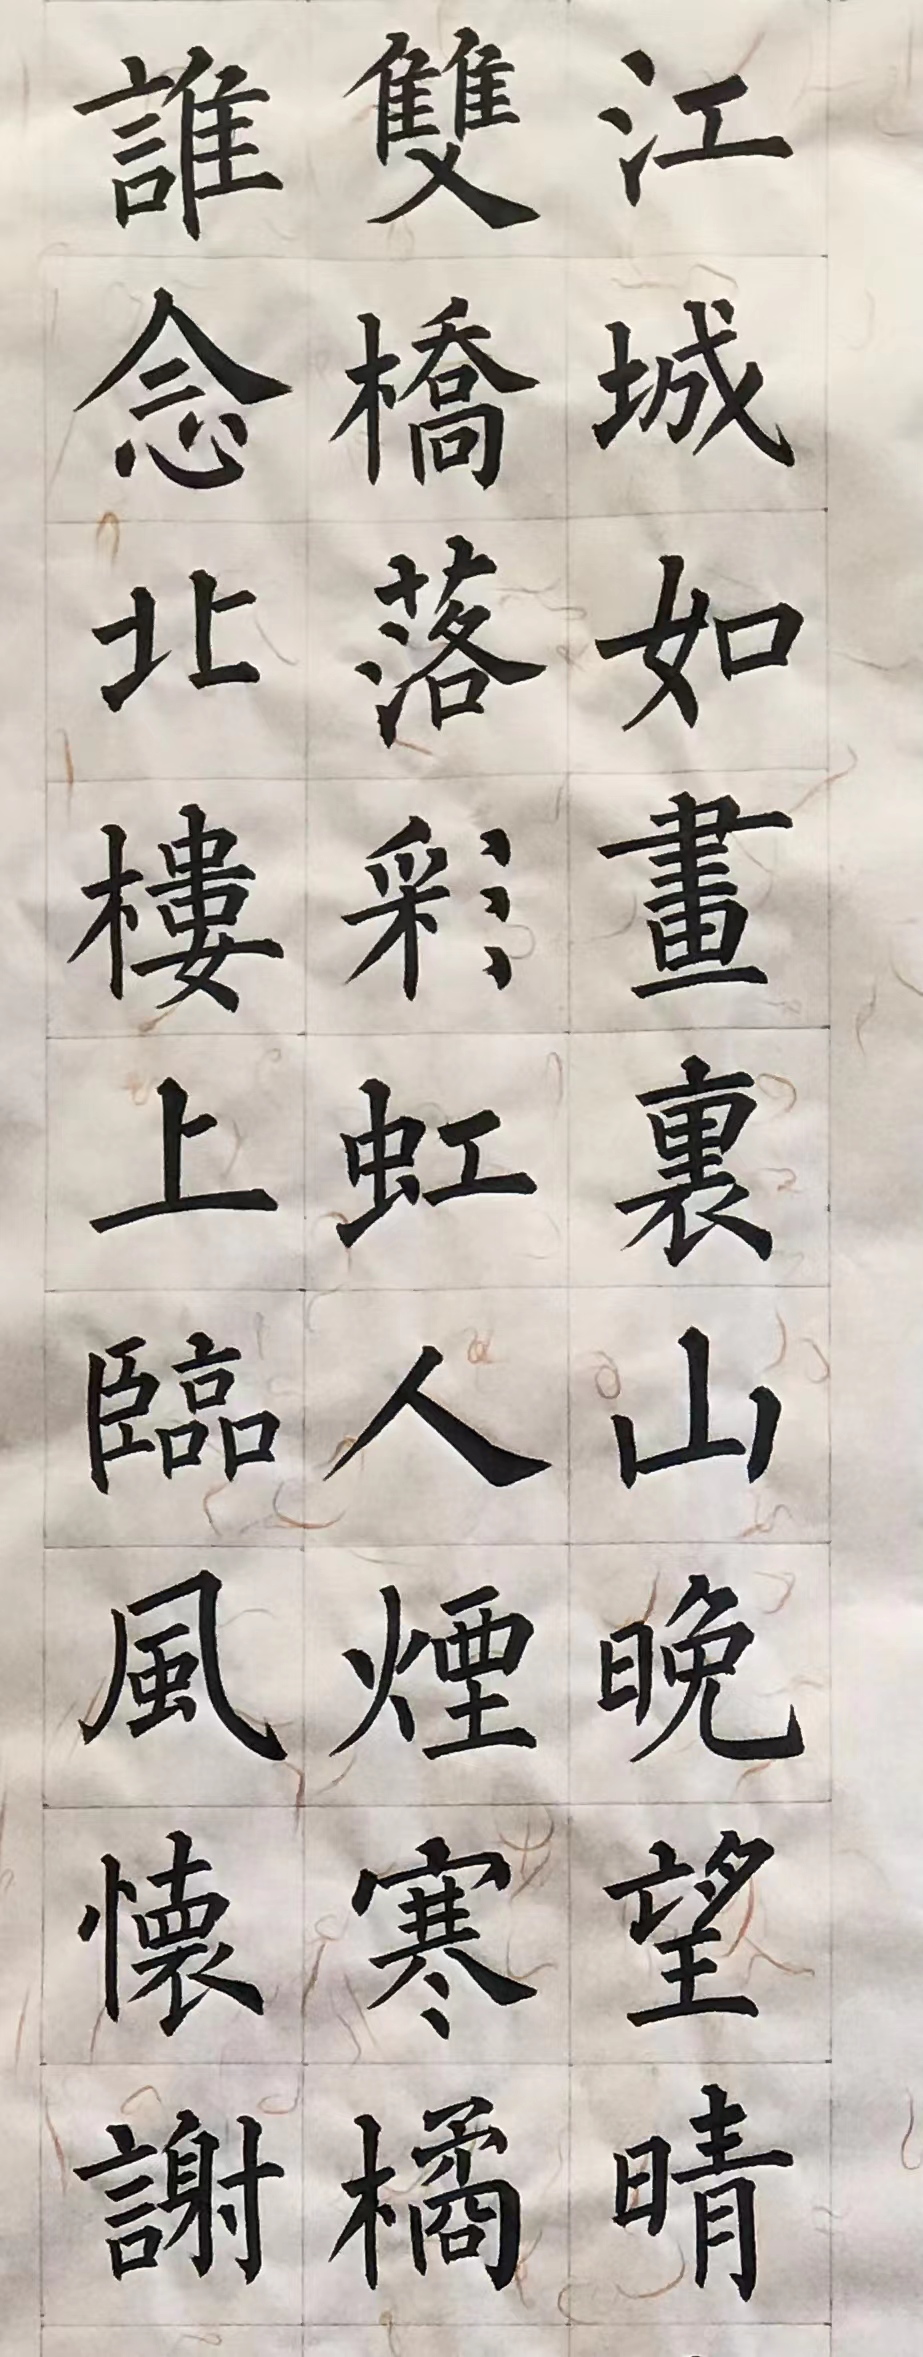 江城如畫裏山晚望晴
雙橋落彩虹人煙寒橘
誰念北樓上臨風懷謝